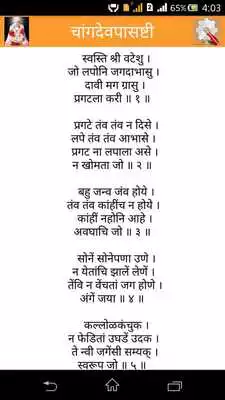 65% 4:03
चांगदेवपासष्टी
स्वस्ति श्री वटेशु ।
जो लपोनि जगदाभासु ।
दावी मग ग्रासु ।
प्रगटला करी ॥ १ ॥
प्रगटे तंव तंव न दिसे ।
लपे तंव तंव आभासे ।
प्रगट ना लपाला असे ।
न खोमता जो ॥ २ ॥
बहु जन्व जंव होये ।
तंव तंव कांहींच न होये ।
कांहीं नहोनि आहे ।
अवघाचि जो ॥ ३ ॥
सोनें सोनेपणा उणे ।
न येतांचि झालें लेणें ।
तेंवि न वेंचतां जग होणे ।
अंगें जया ॥ ४ ॥
कल्लोळकंचुक ।
न फेडितां उघडें उदक ।
ते न्वी जगेंसी सम्यक् ।
स्वरूप जो ॥ ५ ॥